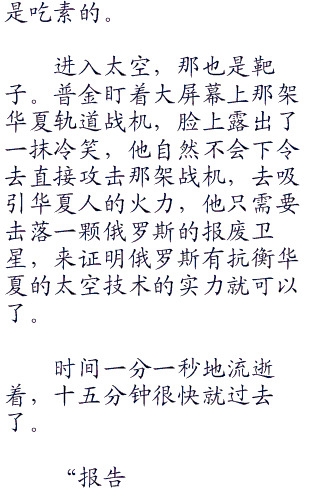 是吃素的。
进入太空，那也是靶
子。普金盯着大屏幕上那架
华夏轨道战机，脸上露出了
一抹冷笑，他自然不会下令
去直接攻击那架战机，去吸
引华夏人的火力，他只需要
击落一颗俄罗斯的报废卫
星，来证明俄罗斯有抗衡华
夏的太空技术的实力就可以
了。
时间一分一秒地流逝
着，十五分钟很快就过去
了。
“报告